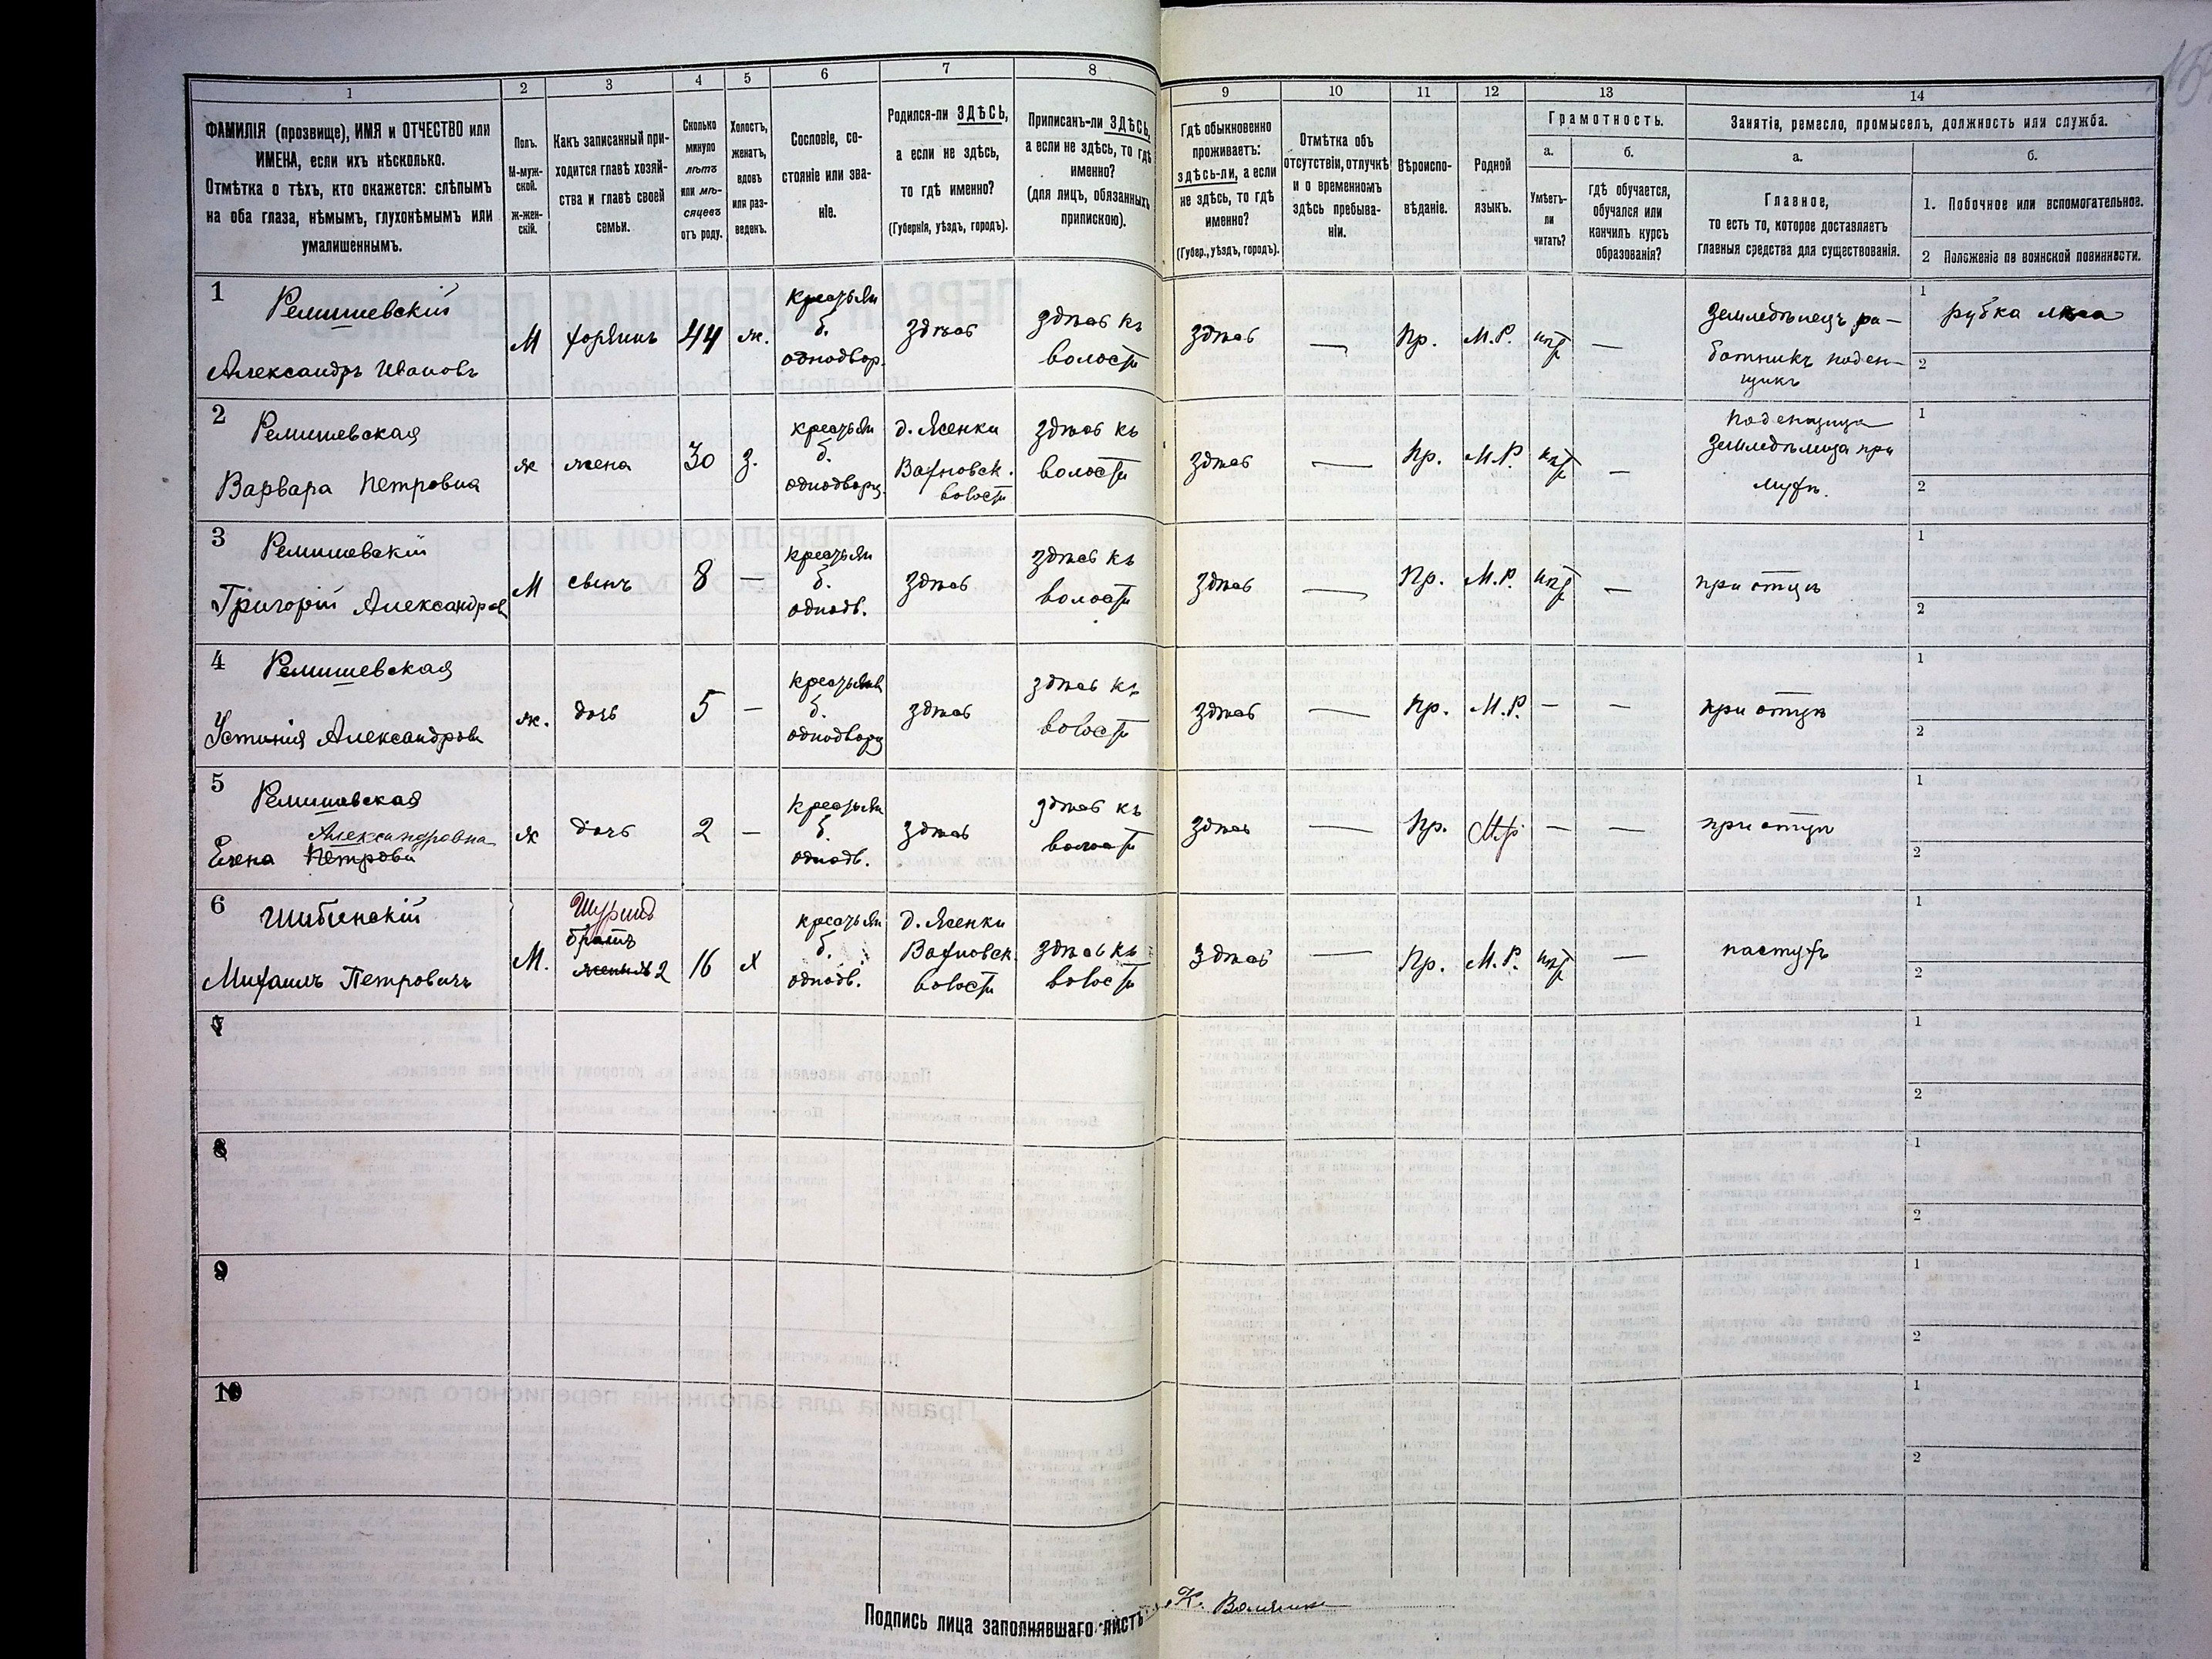 1
2
3
4
5
6
7
8
ФАМИЛІЯ (прозвище), ИМЯ и ОТЧЕСТВО или
ИМЕНА, если ихъ нѣсколько.
Отмѣтка о тѣхъ, кто окажется: слѣпымъ
на оба глаза, нѣмымъ, глухонѣмымъ или
умалишеннымъ.
Полъ.
М-муж-
ской.
Ж-жен-
скій.
Какъ записанный при-
ходится главѣ хозяй-
ства и главѣ своей
семьи.
Сколько
минуло
лѣтъ
или мѣ-
сяцевъ
отъ роду.
Холостъ,
женатъ,
вдовъ
или раз-
веденъ.
Сословіе, со-
стояніе или зва-
ніе.
Родился-ли ЗДѢСЬ,
а если не здѣсь,
то гдѣ именно?
(Губернія, уѣздъ, городъ).
Приписанъ-ли ЗДѢСЬ,
а если не здѣсь, то гдѣ
именно?
(для лицъ, обязанныхъ
припискою).
9
10
11
12
13
14
Гдѣ обыкновенно
проживаетъ:
здѣсь-ли, а если
не здѣсь, то гдѣ
именно?
(Губер., уѣздъ, городъ).
Отмѣтка объ
отсутствіи, отлучкѣ
и о временномъ
здѣсь пребыва-
ніи.
Вѣроиспо-
вѣданіе.
Родной
языкъ.
Грамотность.
а.
Умѣетъ-
ли
читать?
б.
гдѣ обучается,
обучался или
кончилъ курсъ
образованія?
Занятія, ремесло, промыселъ, должность или служба.
а.
Главное,
то есть то, которое доставляетъ
главныя средства для существованія.
б.
1. Побочное или вспомогательное.
2 Положеніе по воинской повинности.
1
Ремишевскій
Александръ Ивановъ
М
хозяинъ
44
ж.
крестьян
б.
однодвор.
здѣсь
здѣсь къ
волости
здѣсь
—
Пр.
М.Р.
нѣт
—
Земледѣлецъ ра-
ботникъ поден-
щикъ
1
рубка лѣса
2
2
Ремишевская
Варвара Петровна
ж
жена
30
з.
крестьян
б.
однодворц.
д. Ясенки
Вахновск.
волости
здѣсь къ
волости
здѣсь
—
Пр.
М.Р.
нѣт
—
Поденщица
земледѣлица при
мужѣ.
1
2
3
Ремишевскій
Григорій Александров
М
сынъ
8
—
крестьян
б.
однодв.
здѣсь
здѣсь къ
волости
здѣсь
—
Пр.
М.Р.
нѣт
—
при отцѣ
1
2
4
Ремишевская
Устинія Александрова
ж.
дочь
5
—
крестьянк
б.
однодворц
здѣсь
здѣсь къ
волости
здѣсь
—
Пр.
М.Р.
—
—
при отцѣ
1
2
5
Ремишевская
Александровна
Елена Петрова
ж
дочь
2
—
крестьян
б.
однодв.
здѣсь
здѣсь къ
волости
здѣсь
—
Пр.
М.р
—
—
при отцѣ
1
2
6
Шибинскій
Михаилъ Петровичъ
М.
Шуринъ
братъ
жены №2
16
х
крестьян
б.
однодв.
д. Ясенки
Вахновск.
волости
здѣсь къ
волости
здѣсь
—
Пр.
М.Р.
нѣт
—
пастухъ
1
2
7
1
2
8
1
2
9
1
2
10
1
2
Подпись лица заполнявшаго листъ